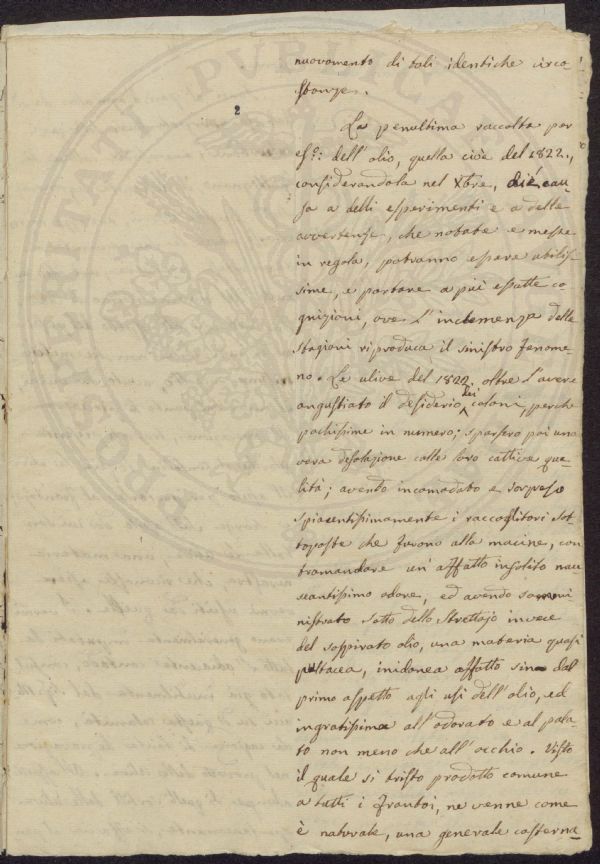 PROSPERITATI PUBLICAE
2
nuovamento di tali identiche circo-
stanze.
La penultima raccolta per
es.º: dell' olio, quella cioè del 1822.,
considerandola nel Xbre, diè cau-
sa a delli esperimenti e a delle
avvertense, che notate e messe
in regola, potranno essere utilis-
sime, e portare a più esatte co-
gnizioni, ove l' inclemenza delle
stagioni riproduca il sinistro fenome-
no. Le ulive del 1822. oltre l' avere
angustiato il desiderio dei coloni, perchè
pochissime in numero; sparsero poi una
vera desolazione colle loro cattive qua-
lità; avendo incomodato e sorpreso
spiacentissimamente i raccoglitori sot-
toposte che furono alla macine, con
tramandare un' affatto insolito nau-
seantissimo odore, ed avendo sommi
nistrato sotto dello Strettojo invece
del sospirato olio, una materia quasi
pultacea, inidonea affatto sino dal
primo aspetto agli usi dell' olio, ed
ingratissima all' odorato e al pala-
to non meno che all' occhio. Visto
il quale si tristo prodotto comune
a tutti i frantoi, ne venne come
è naturale, una generale costerna-